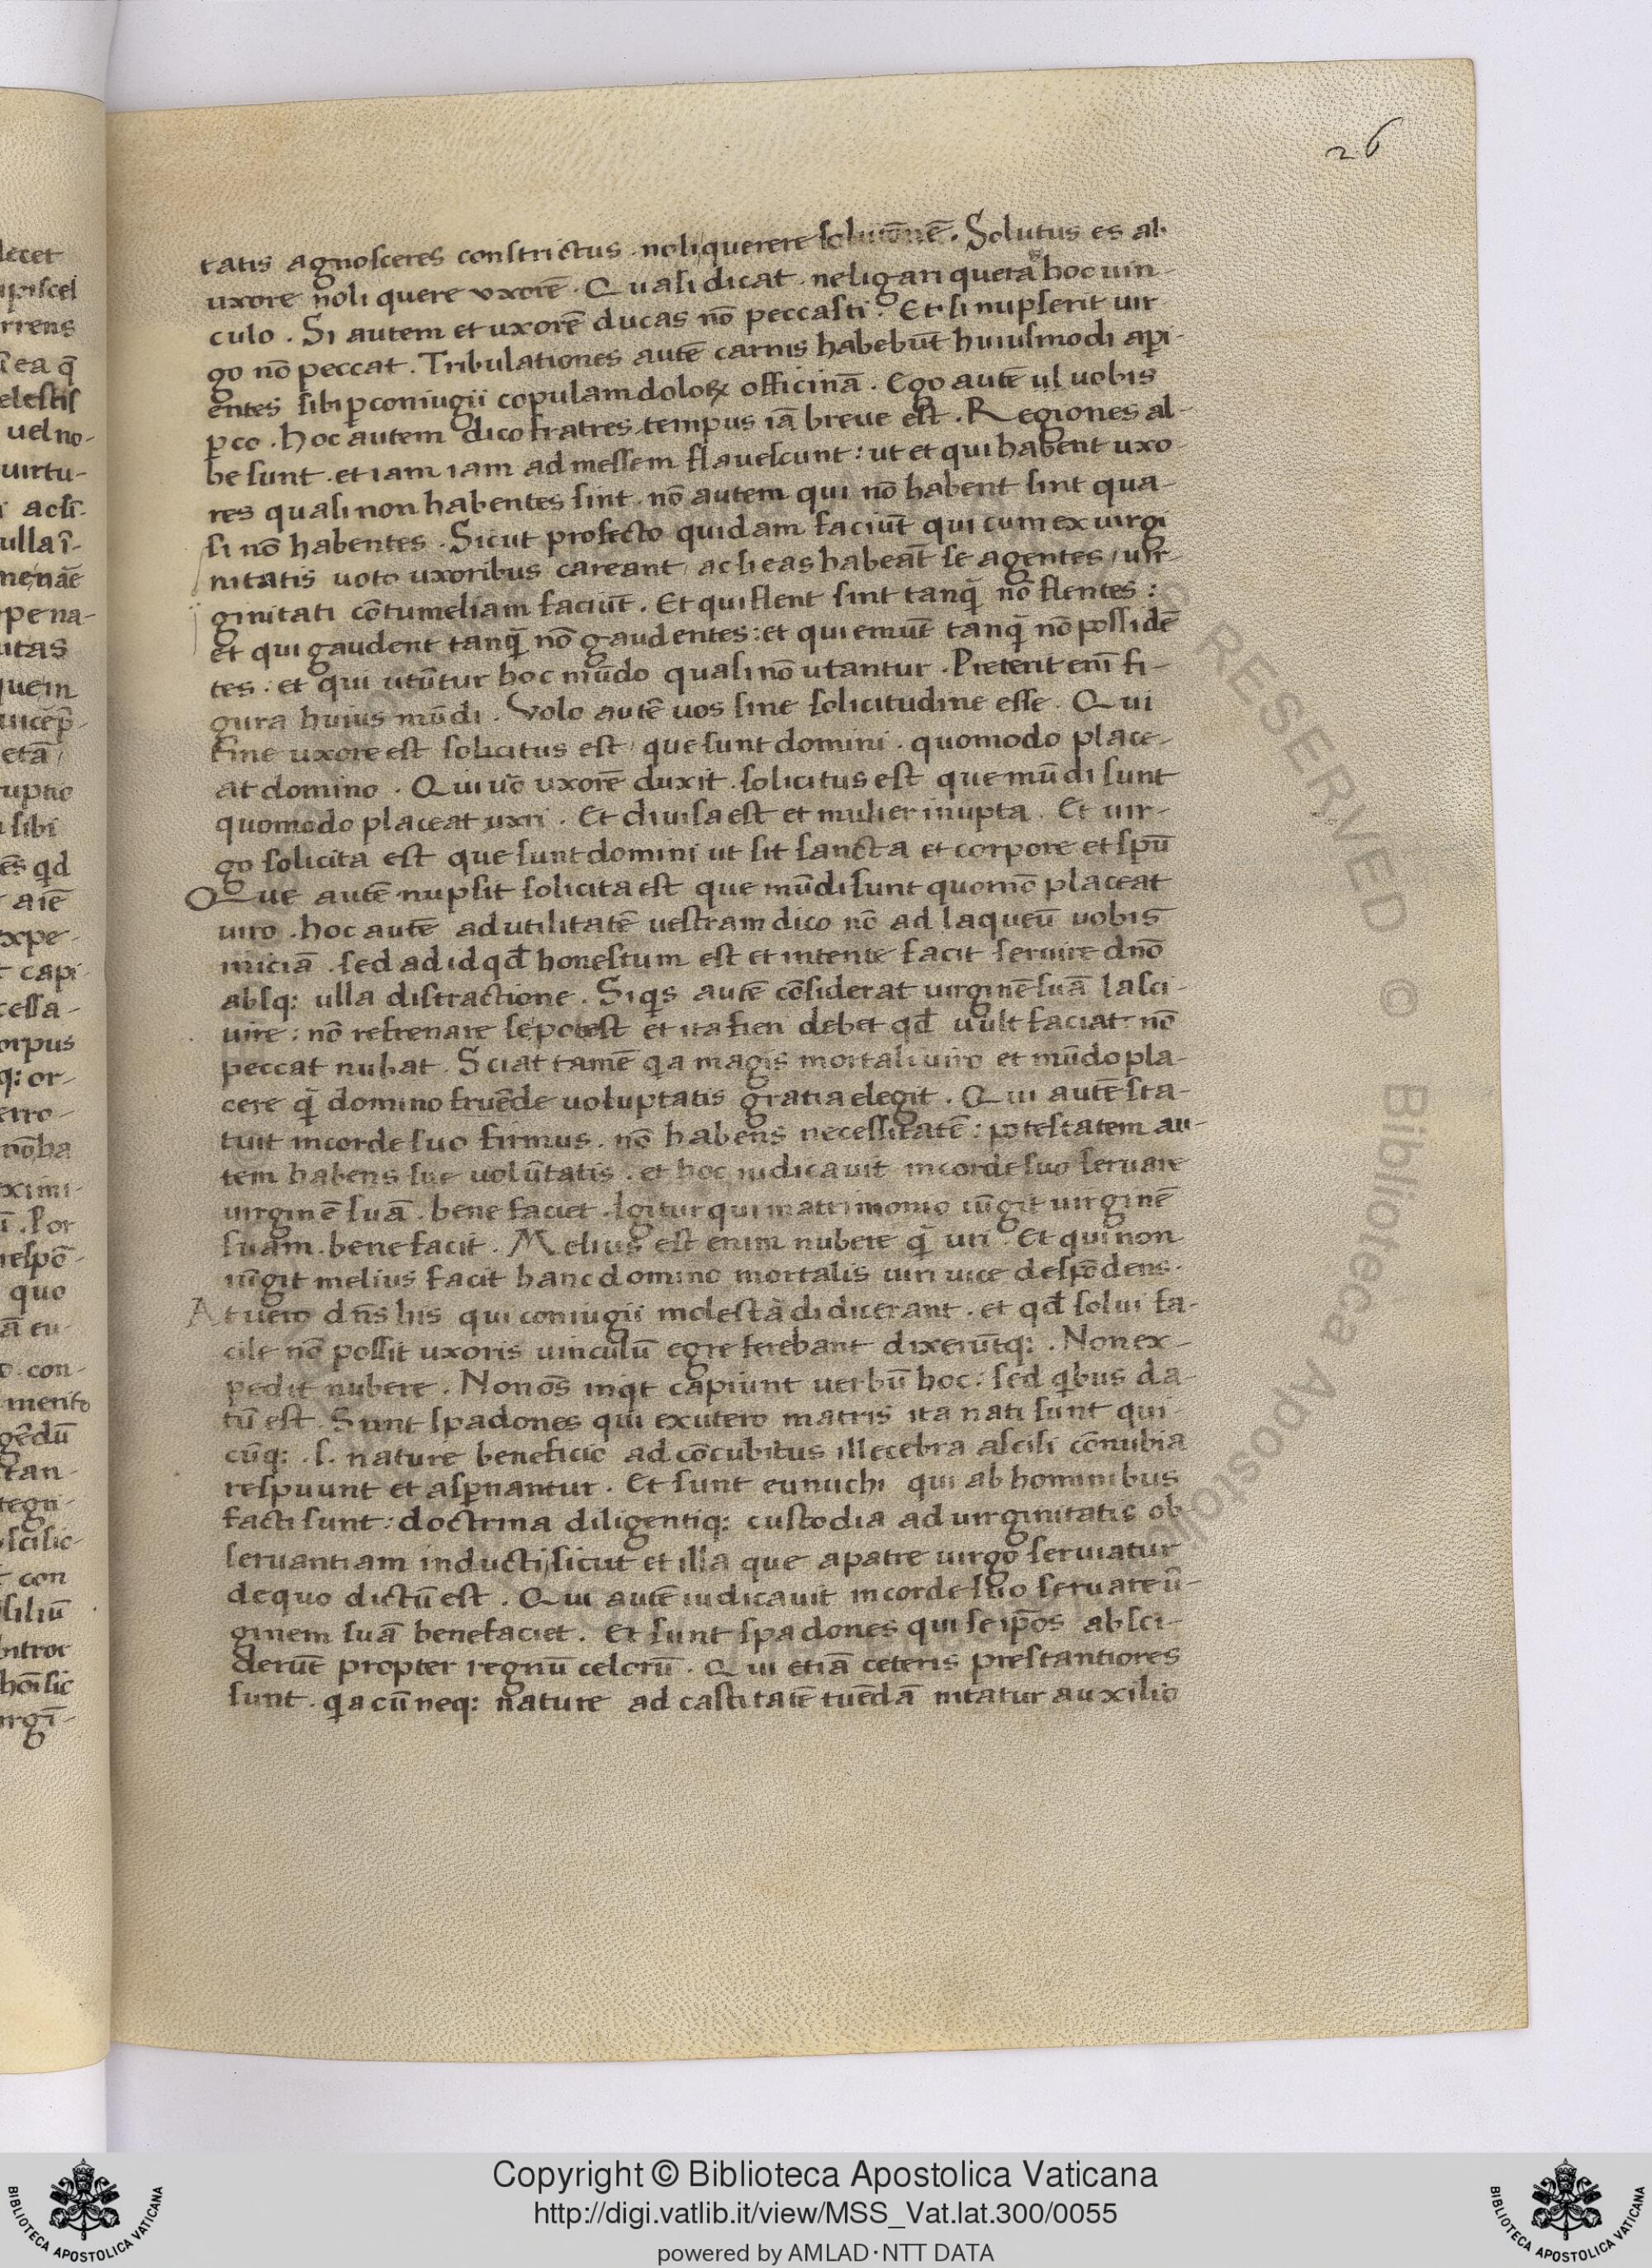 26
tatis agnosceres constrictus. noli querere solutiōnē. Solutus es ab
uxore noli querere uxorē. Quasi dicat. ne ligari queras hoc uin-
culo. Si autem et uxorē ducas nō peccasti. Et si nupserit uir
go nō peccat. Tribulationes autē carnis habebūt huiusmodi aꝑi-
entes sibi ꝑ coniugii copulam doloꝝ officinā. Ego autē ul uobis
ꝑco. hoc autem dico fratres tempus iā breue est. Regiones al-
be sunt. et iam iam ad messem flauescunt: ut et qui habent uxo-
res quasi non habentes sint. nō autem qui nō habent sint qua-
si nō habentes. Sicut profecto quidam faciūt qui cum ex uirgi
nitatis uoto uxoribus careant, ac si eas habeāt se agentes, uir-
ginitati cōtumeliam faciūt. Et qui flent sint tanq̄ nō flentes:
et qui gaudent tanq̄ nō gaudentes: et qui emūt tanq̄ nō possidē
tes. et qui utūtur hoc mūdo quasi nō utantur. Preterit eni fi-
gura huius mūdi. Volo autē uos sine solicitudine esse. Qui
sine uxore est solicitus est, que sunt domini. quomodo place-
at domino. Qui uō uxorē duxit. solicitus est que mūdi sunt
quomodo placeat uxri. Et diuisa est et mulier inupta. Et uir-
go solicita est que sunt domini ut sit sancta et corpore et spū
Que autē nupsit solicita est que mūdi sunt quomō placeat
uiro. hoc autē ad utilitatē uestram dico nō ad laqueū uobis
iniciā. sed ad id qđ honestum est et intente facit seruire dnō
absq: ulla distractione. Si qs autē cōsiderat uirginē suā lasci-
uire: nō refrenare se potest et ita fieri debet qđ uult faciat nō
peccat nubat. Sciat tamē qa magis mortali uiro et mūdo pla-
cere q̄ domino fruēde uoluptatis gratia elegit. Qui autē sta-
tuit in corde suo firmus. nō habens necessitatē: potestatem au-
tem habens sue volūtatis. et hoc iudicauit in corde suo seruare
uirginē suā. bene faciet. Igitur qui matrimonio iūgit uirginē
suam. bene facit. Melius est enim nubere q̄ uri. Et qui non
iūgit melius facit hanc domino mortalis uiri uice despōdens.
At uero dn̄s his qui coniugii molestā didicerant. et qđ solui fa-
cile nō possit uxoris uinculū egre ferebant dixerūtq:. Non ex-
pedit nubere. Non oēs inqt capiunt uerbū hoc: sed qbus da-
tū est. Sunt spadones qui ex utero matris ita nati sunt qui-
cūq: .s. nature beneficio ad cōcubitus illecebra ascisi cōnubia
respuunt et asꝑnantur. Et sunt eunuchi qui ab hominibus
facti sunt: doctrina diligentiq: custodia ad uirginitatis ob
seruantiam inducti, sicut et illa que a patre uirgo seruatur
de quo dictū est. Qui autē iudicauit in corde suo seruare ū-
ginem suā bene faciet. Et sunt spadones qui se ip̄os absci-
derūt propter regnū celorū. Qui etiā ceteris prestantiores
sunt. qa cū neq: nature ad castitatē tuēdā nitatur auxilio
RESERVED © Biblioteca Apostolica
Copyright © Biblioteca Apostolica Vaticana
http://digi.vatlib.it/view/MSS_Vat.lat.300/0055
powered by AMLAD·NTT DATA
BIBLIOTECA APOSTOLICA VATICANA
BIBLIOTECA APOSTOLICA VATICANA